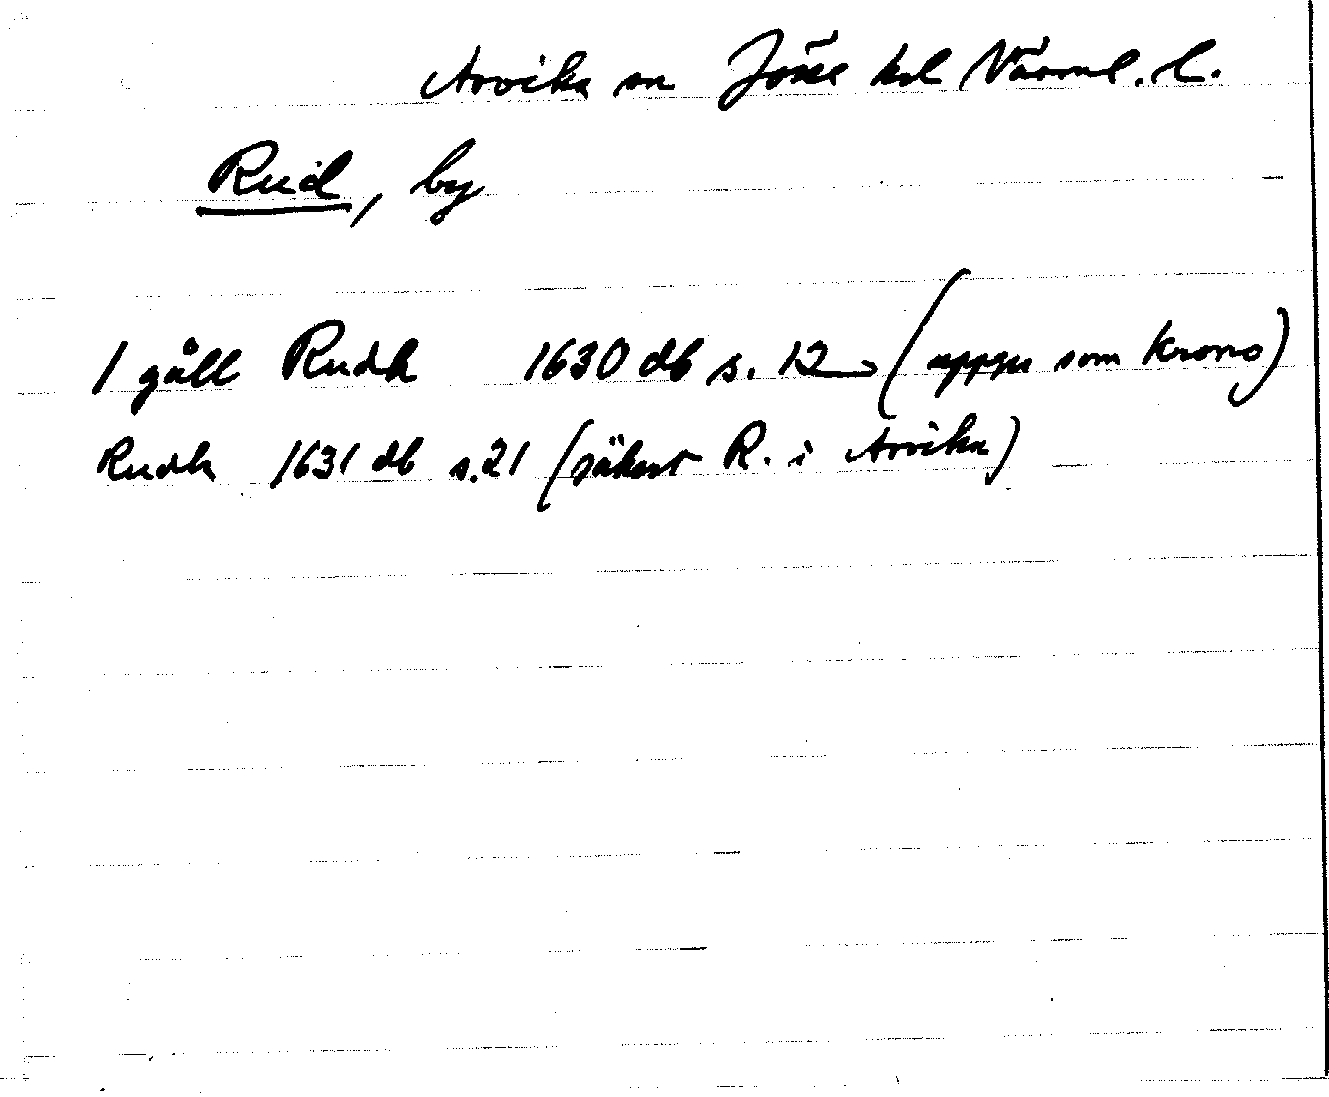 Arvika sn Jösse hd Värml. l.
Rud, by
1 gåll Rudh 1630 db s. 12 (uppgu som krono)
Rudh 1631 db s. 21 (säkert R. i Arvika)